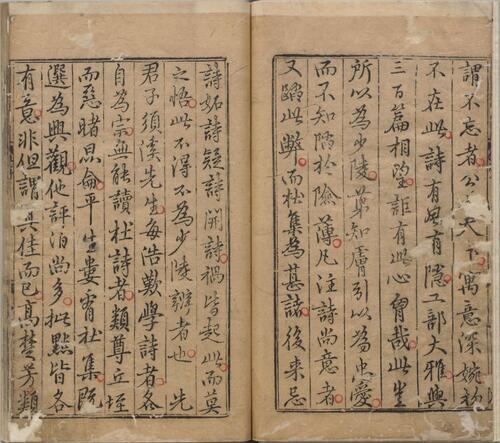 謂不忘者公之天下寓意深婉初
不在此詩有風有隱工部大雅與
三百篇相望詎有此心胷哉此豈
所以為少陵第知膚引以為忠愛
而不知陷於險薄凡注詩尚意者
又蹈此弊而杜集為甚諸後來忌
詩妬詩疑詩開詩禍皆起此而莫
之悟此不得不為少陵辯者也先
君子須溪先生每浩歎學詩者各
自為宗無能讀杜詩者類尊丘垤
而惡睹昆侖平生婁看杜集既
選為興觀他評泊尚多批點皆各
有意非但謂其佳而已高楚芳類